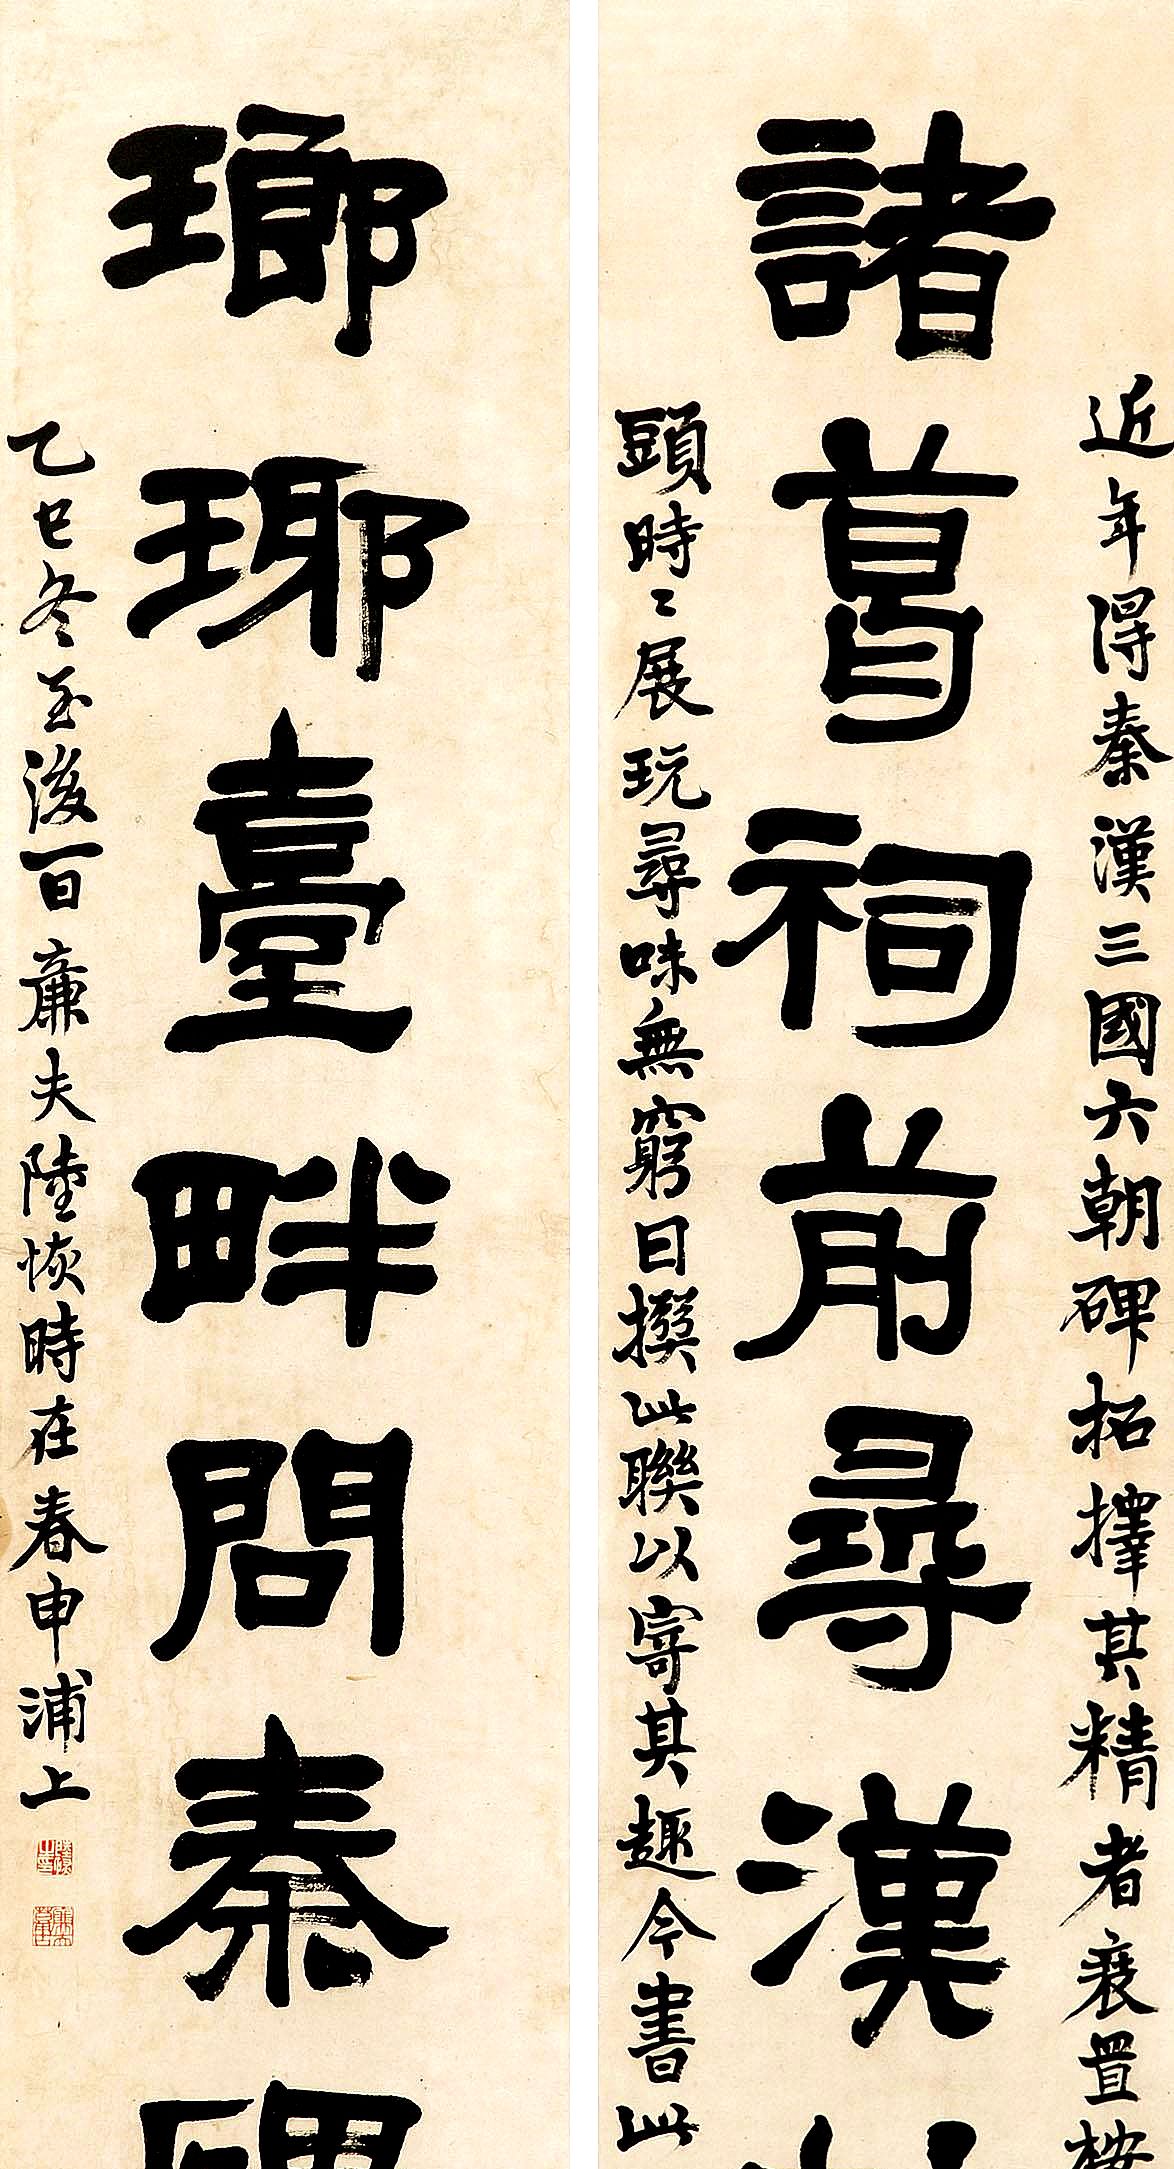 近年得秦漢三國六朝碑拓擇其精者裒置
諸葛祠前尋漢
頭時〻展玩尋味無窮曰撰此聯以寄其趣今書此
瑯琊臺畔問秦碑
乙巳冬至後一日廉夫陸恢時在春申浦上